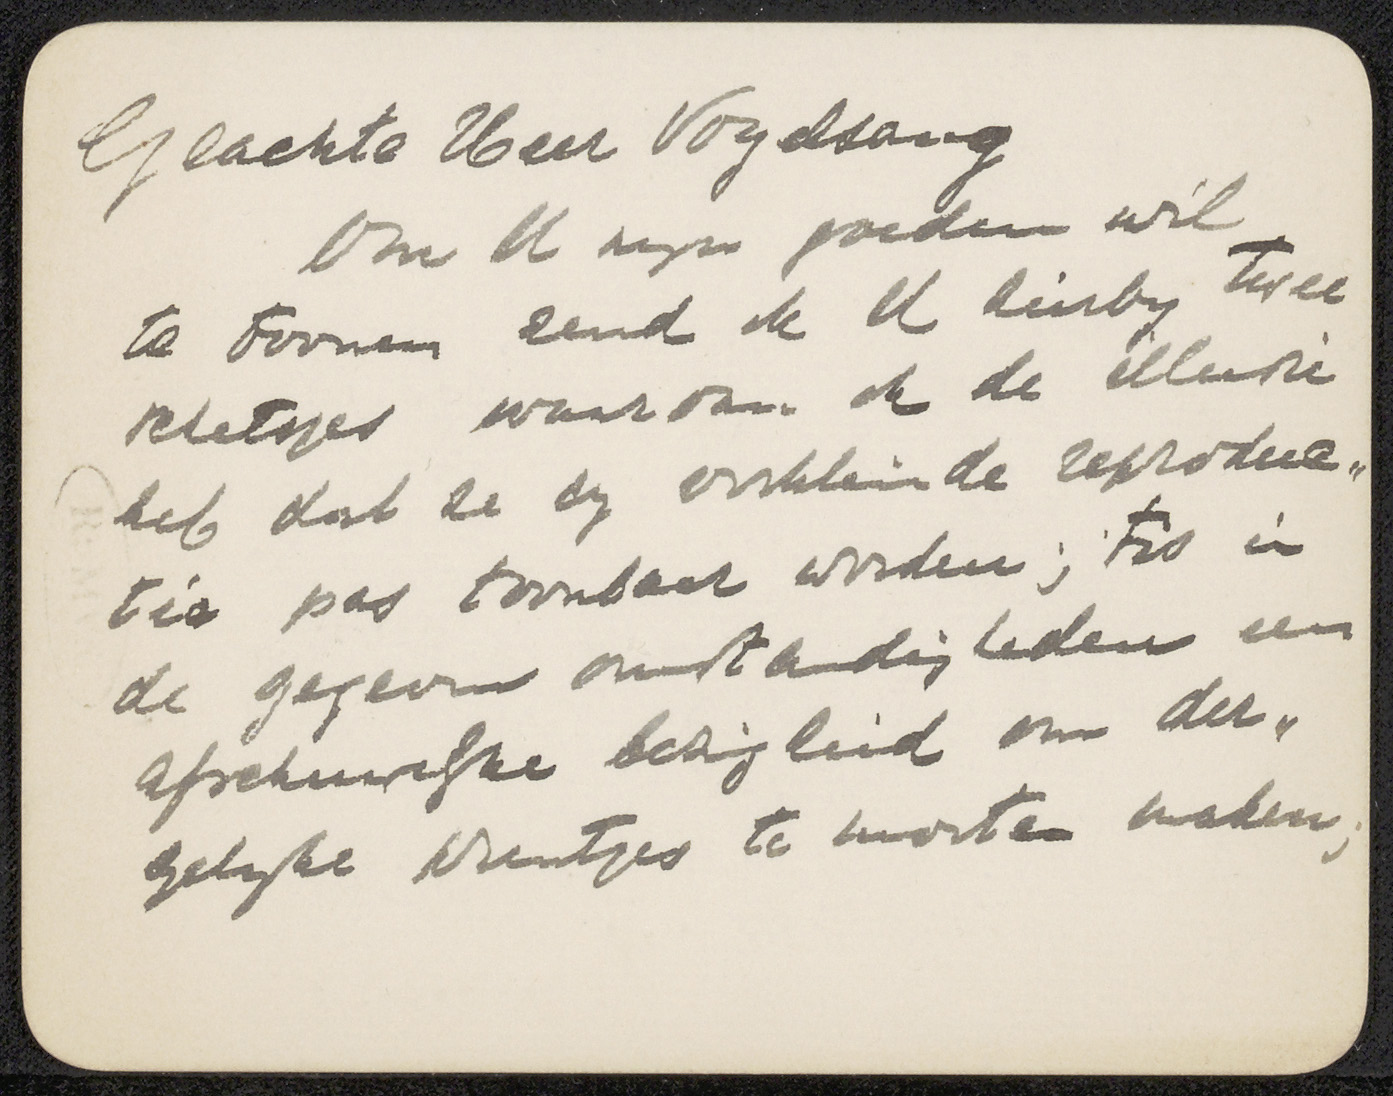 Geachte Heer Vogelsang
Om U mijn goeden wil
te toonen zend ik U hierbij twee
schetsjes waarvan ik de illusie
heb dat ze bij verkleinde reproduc„
tie pas toonbaar worden; 't is in
de gegeven omstandigheden een
afschuwelijke bezigheid om der„
gelijke prentjes te moeten maken;